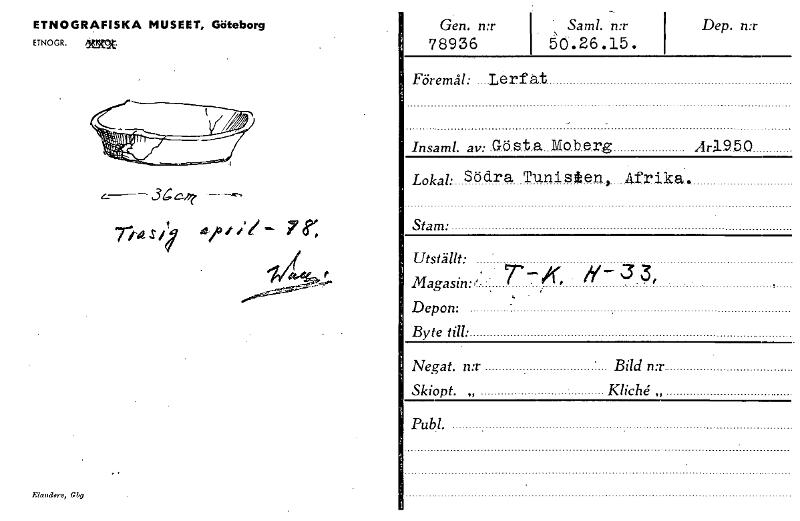 ETNOGRAFISKA MUSEET, Göteborg
ETNOGR.
36cm
Trasig april - 78.
Elanders, Gbg
Gen. n:r
78936
Saml. n:r
50.26.15.
Dep. n:r
Föremål: Lerfat
Insaml. av: Gösta Moberg År 1950
Lokal: Södra Tunisien, Afrika.
Stam:
Utställt:
Magasin: T-K. H-33.
Depon:
Byte till:
Negat. n:r Bild n:r
Skiopt. „ Kliché „
Publ.